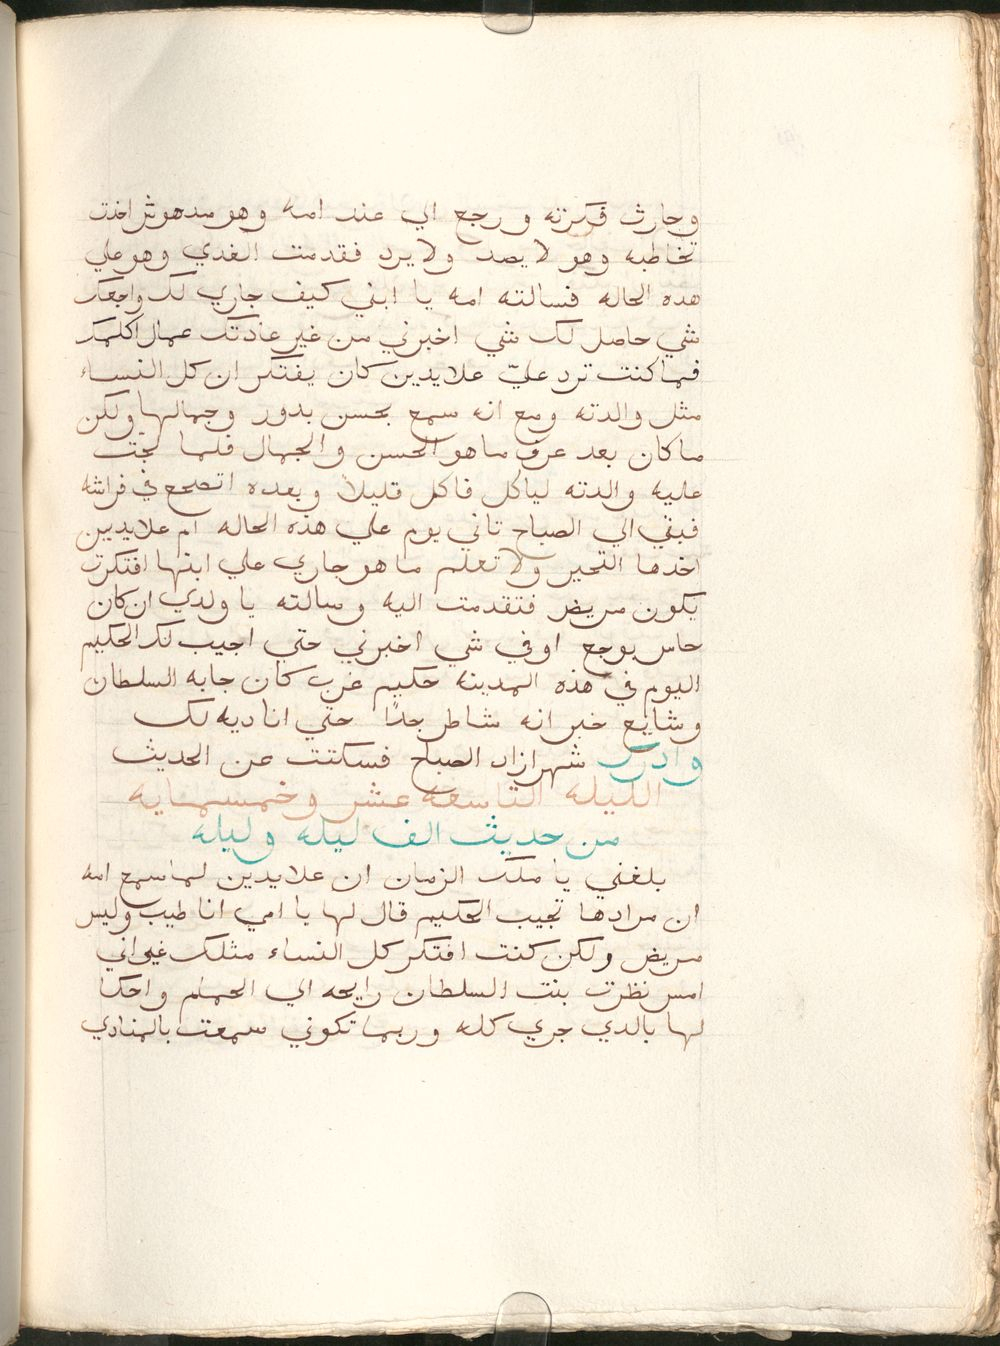 وحارث فكرته ورجع الي عند امه وهو مدهوش اخذت
تخاطبه وهو لا يصد ولا يرد فقدمت الغدي وهو علي
هده الحاله فسالته امه يا ابني كيف جاري لك واجعك
شي حاصل لك شي اخبرني من غير عادتك عمال اكلمك
فما كنت ترد عليّ علايدين كان يفتكر ان كل النساء
مثل والدته ومع انه سمع بحسن بدور وجمالها ولكن
ما كان بعد عرف ما هو الحسن والجمال فلما لجّت
عليه والدته لياكل فاكل قليلاً وبعده اتضجع في فراشه
فبقي الي الصباح تاني يوم علي هذه الحاله ام علايدين
اخدها التحير ولا تعلم ما هو جاري علي ابنها افتكرت
يكون مريض فتقدمت اليه وسالته يا ولدي ان كان
حاس بوجع او في شي اخبرني حتي اجيب لك الحكيم
اليوم في هذه المدينه حكيم غرب كان جابه السلطان
وشايع خبر انه شاطر جدًا حتي اناديه لك
وادرك شهرازاد الصباح فسكتت عن الحديث
الليله التاسعه عشر وخمسمايه
من حديث الف ليله وليله
بلغني يا ملك الزمان ان علايدين لما سمع امه
ان مرادها تجيب الحكيم قال لها يا امي انا طيب وليس
مريض ولكن كنت افتكر كل النساء مثلك غير اني
امس نظرت بنت السلطان رايحه الي الحمام واحكا
لها بالدي جري كله وربما تكوني سمعت بالمنادي